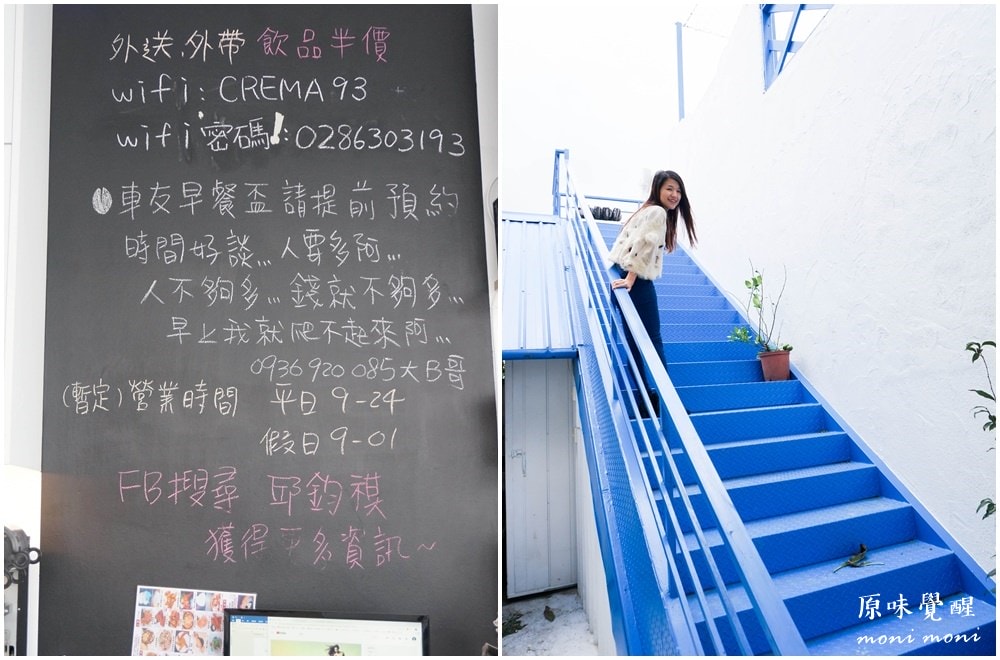 外送.外帶 飲品半價
wifi: CREMA 93
wifi 密碼!: 0286303193
車友早餐盃請提前預約
時間好談,,, 人要多阿...
人不夠多... 錢就不夠多...
早上我就爬不起來阿...
0936 920 085 大B哥
(暫定) 營業時間 平日 9-24
假日 9-01
FB搜尋 邱鈞禖
獲得更多資訊~
原味覺醒
moni moni